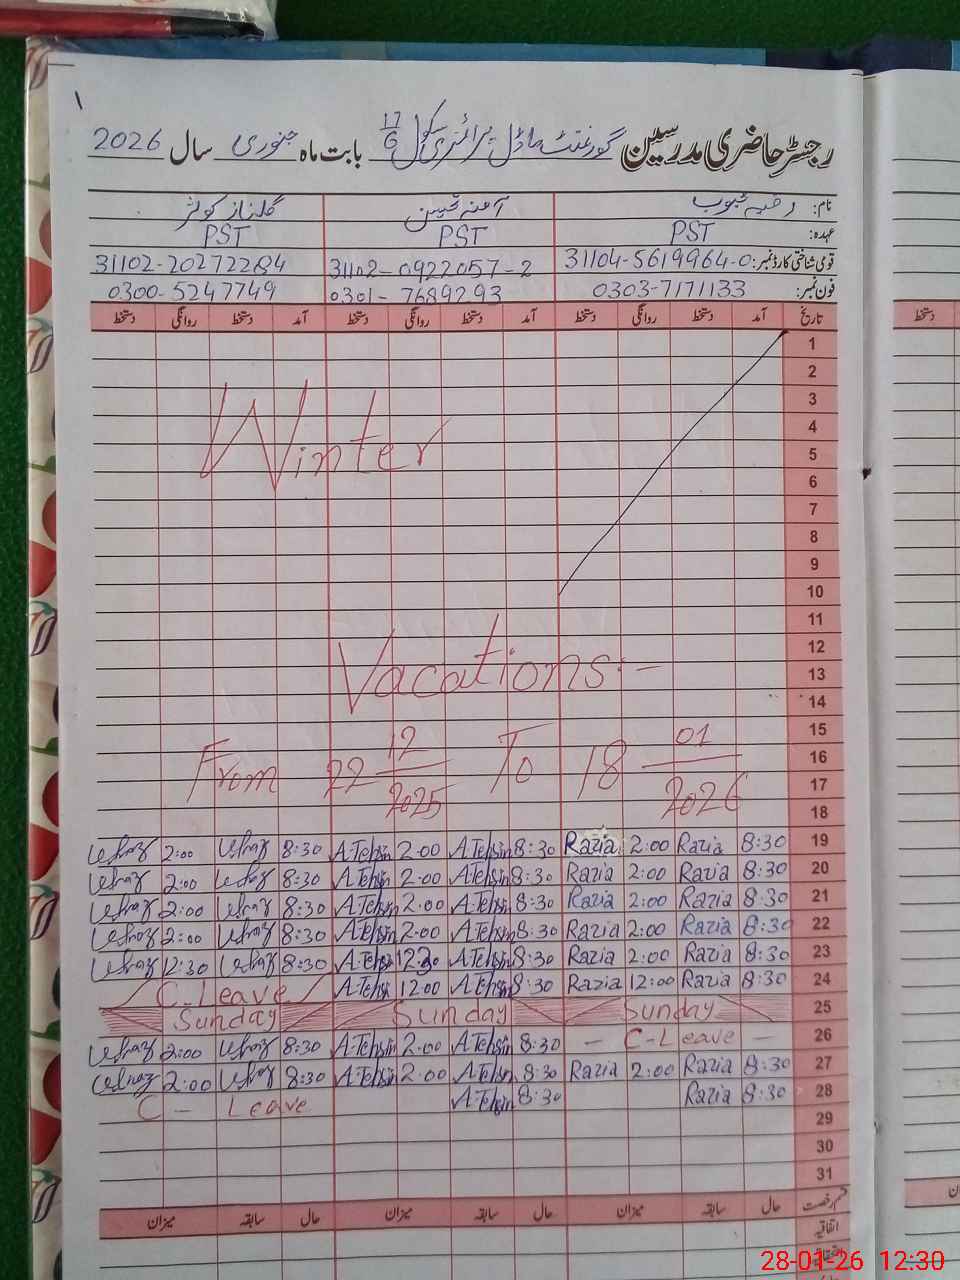 ۱
رجسٹر حاضری مدرسین گورنمنٹ ماڈل پرائمری سکول 17/G بابت ماہ جنوری سال 2026
نام: رضیہ محبوب آمنہ تحسین گلناز کوثر
عہدہ: PST PST PST
قومی شناختی کارڈ نمبر: 31104-5619964-0 31102-0922057-2 31102-20272284
فون نمبر: 0303-7171133 0301-7689293 0300-5247749
تاریخ آمد دستخط روانگی دستخط آمد دستخط روانگی دستخط آمد دستخط روانگی دستخط
دستخط
1
2
3
4
Winter
5
6
7
8
9
10
11
12
Vacations:-
13
14
15
From 22 12/2025 To 18 01/2026
16
17
18
2:00 8:30 A.Tehsin 2:00 A.Tehsin 8:30 Razia 2:00 Razia 8:30 19
2:00 8:30 A.Tehsin 2:00 A.Tehsin 8:30 Razia 2:00 Razia 8:30 20
2:00 8:30 A.Tehsin 2:00 A.Tehsin 8:30 Razia 2:00 Razia 8:30 21
2:00 8:30 A.Tehsin 2:00 A.Tehsin 8:30 Razia 2:00 Razia 8:30 22
12:30 8:30 A.Tehsin 12:30 A.Tehsin 8:30 Razia 2:00 Razia 8:30 23
C-Leave A.Tehsin 12:00 A.Tehsin 8:30 Razia 12:00 Razia 8:30 24
Sunday Sunday Sunday 25
2:00 8:30 A.Tehsin 2:00 A.Tehsin 8:30 - C-Leave - 26
2:00 8:30 A.Tehsin 2:00 A.Tehsin 8:30 Razia 2:00 Razia 8:30 27
C - Leave A.Tehsin 8:30 Razia 8:30 28
29
30
31
قسم رخصت حال سابقہ میزان حال سابقہ میزان حال سابقہ میزان
اتفاقیہ
28-01-26 12:30